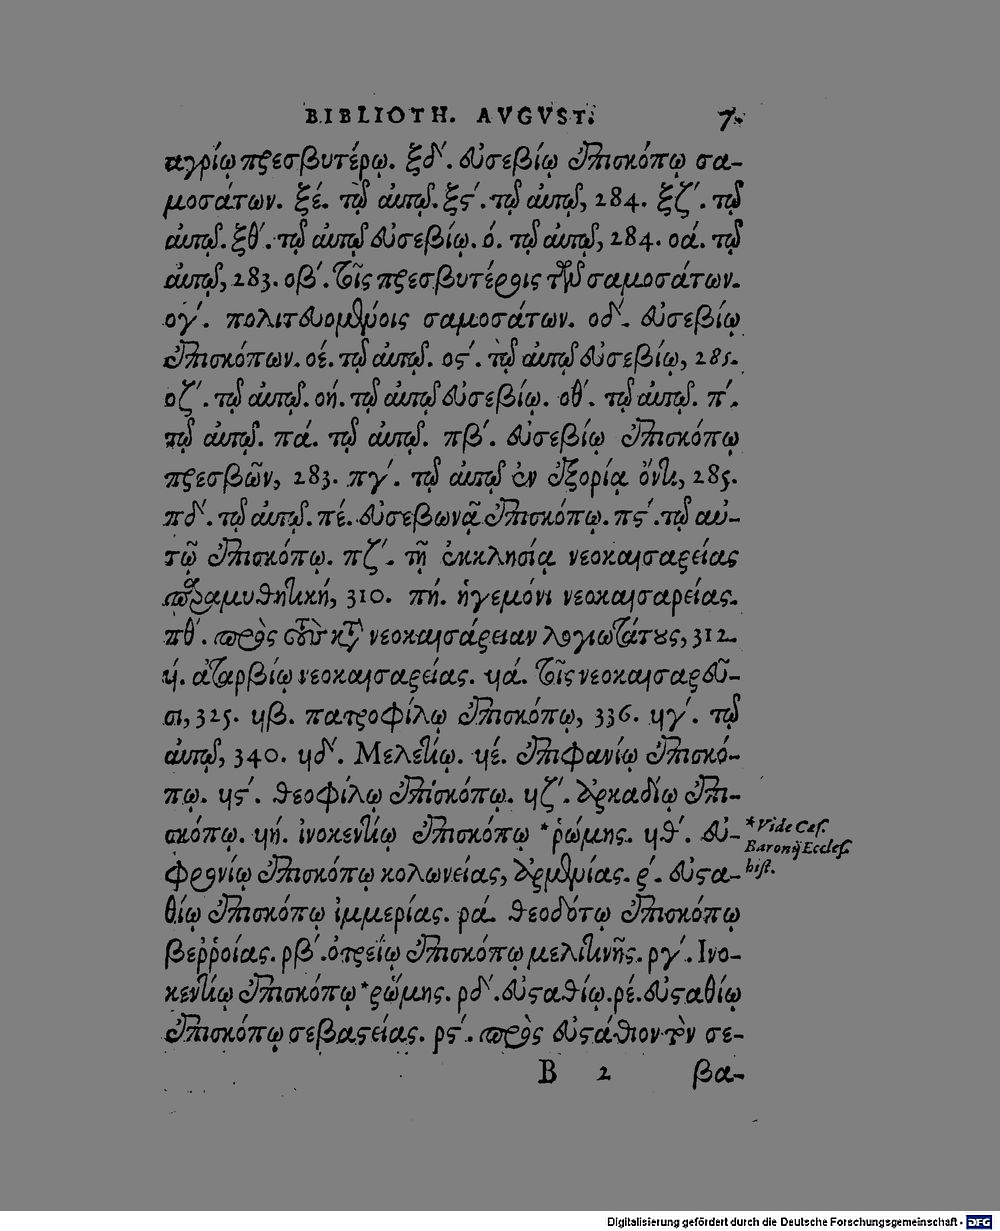 BIBLIOTH. AVGVST. 7.
αγρίῳ πρεσβυτέρῳ. ξδ΄. εὐσεβίῳ ἐπισκόπῳ σα-
μοσάτων. ξέ. τῷ αὐτῷ. ξϛ΄. τῷ αὐτῷ, 284. ξζ΄. τῷ
αὐτῷ. ξθ΄. τῷ αὐτῷ εὐσεβίῳ. ό. τῷ αὐτῷ, 284. οά. τῷ
αὐτῷ, 283. οβ΄. τοῖς πρεσβυτέροις τῶν σαμοσάτων.
ογ΄. πολιτευομένοις σαμοσάτων. οδ΄. εὐσεβίῳ
ἐπισκόπων. οέ. τῷ αὐτῷ. οϛ΄. τῷ αὐτῷ εὐσεβίῳ, 285.
οζ΄. τῷ αὐτῷ. οή. τῷ αὐτῷ εὐσεβίῳ. οθ΄. τῷ αὐτῷ. π΄.
τῷ αὐτῷ. πά. τῷ αὐτῷ. πβ΄. εὐσεβίῳ ἐπισκόπῳ
πρεσβῶν, 283. πγ΄. τῷ αὐτῷ ἐν ἐξορίᾳ ὄντι, 285.
πδ΄. τῷ αὐτῷ. πέ. εὐσεβωνᾷ ἐπισκόπῳ. πϛ΄. τῷ αὐ-
τῷ ἐπισκόπῳ. πζ΄. τῇ ἐκκλησίᾳ νεοκαισαρείας
παραμυθητική, 310. πή. ἡγεμόνι νεοκαισαρείας.
πθ΄. πρὸς τοὺς κατὰ νεοκαισάρειαν λογιωτάτους, 312.
ϥ΄. ἀταρβίῳ νεοκαισαρείας. ϥά. τοῖς νεοκαισαρεῦ-
σι, 325. ϥβ. πατροφίλῳ ἐπισκόπῳ, 336. ϥγ΄. τῷ
αὐτῷ, 340. ϥδ΄. Μελετίῳ. ϥέ. ἐπιφανίῳ ἐπισκό-
πῳ. ϥϛ΄. θεοφίλῳ ἐπισκόπῳ. ϥζ΄. ἀρκαδίῳ ἐπι-
σκόπῳ. ϥή. ἰνοκεντίῳ ἐπισκόπῳ *ῥώμης. ϥθ΄. εὐ-
φρονίῳ ἐπισκόπῳ κολωνείας, ἀρμενίας. ρ΄. εὐστα-
θίῳ ἐπισκόπῳ ἱμμερίας. ρά. θεοδότῳ ἐπισκόπῳ
βεῤῥοίας. ρβ΄. ὀτρείῳ ἐπισκόπῳ μελιτινῆς. ργ΄. Ινο-
κεντίῳ ἐπισκόπῳ *ῥώμης. ρδ΄. εὐσταθίῳ. ρέ. εὐσταθίῳ
ἐπισκόπῳ σεβαστείας. ρϛ΄. πρὸς εὐστάθιον τὸν σε-
B 2 βα-
*Vide Cæs.
Baronij Eccles.
hist.
Digitalisierung gefördert durch die Deutsche Forschungsgemeinschaft - DFG